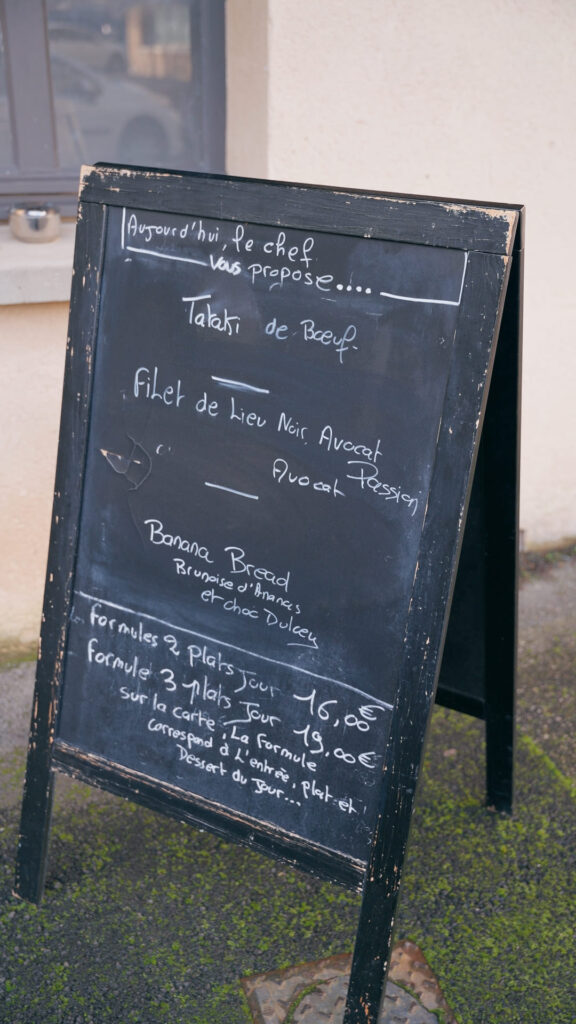 Aujourd'hui, le chef
vous propose....
Tataki de Bœuf.
Filet de Lieu Noir, Avocat
Passion
Avocat
Banana Bread
Brunoise d'Ananas
et choc Dulcey
formules 2 plats Jour 16,00€
formule 3 plats Jour 19,00€
sur la carte, La formule
correspond à L'entrée, plat et
Dessert du Jour...